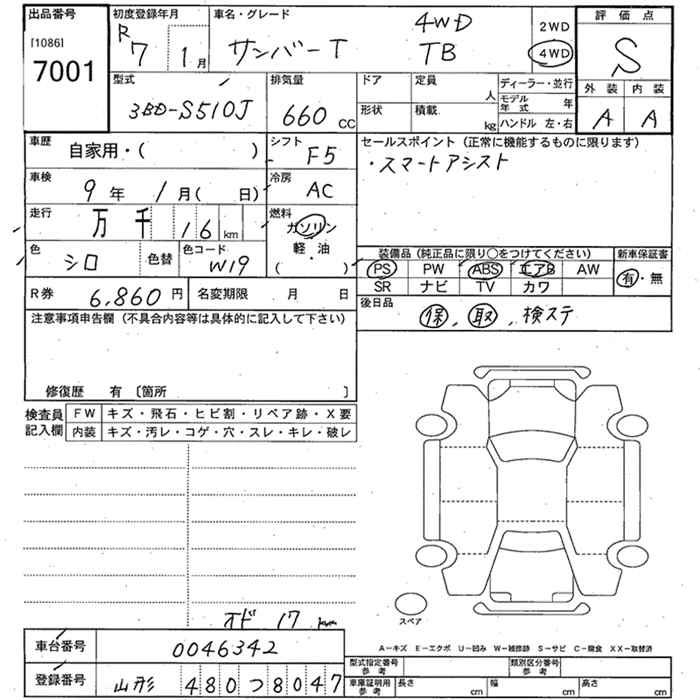 出品番号 初度登録年月 車名・グレード 評価点
[1086] 7001 R 7 1月 サンバーT 4WD TB 2WD 4WD S
外装 内装
A A
型式 排気量 ドア 定員 人 ディーラー・並行
3BD-S510J 660 CC 形状 積載 kg モデル年式 年
ハンドル 左・右
車歴 自家用・( ) シフト F5 セールスポイント（正常に機能するものに限ります）
・スマートアシスト
車検 9年 1月( 日) 冷房 AC
走行 万 千 16 km 燃料 ガソリン・軽油 ( )
色 シロ 色替 色コード W19
装備品（純正品に限り〇をつけてください） 新車保証書
PS PW ABS エアB AW 有・無
SR ナビ TV カワ
R券 6,860円 名変期限 月 日 後日品
保, 取, 検ステ
注意事項申告欄（不具合内容等は具体的に記入して下さい）
修復歴 有〔箇所 〕
検査員記入欄 FW キズ・飛石・ヒビ割・リペア跡・X要
内装 キズ・汚レ・コゲ・穴・スレ・キレ・破レ
スペア
オド 17 km
車台番号 0046342
A－キズ E－エクボ U－凹み W－補修跡 S－サビ C－腐食 XX－取替済
登録番号 山形 480つ8047
型式指定番号参考 類別区分番号参考
車庫証明用参考 長さ cm 幅 cm 高さ cm